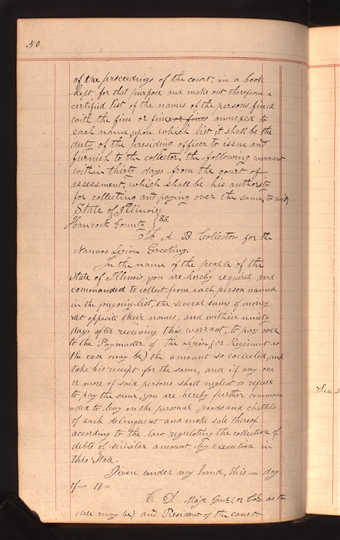 50
of the proceedings of the court, in a book
kept for that purpose and make out therefrom a
certified list of the names of the persons fined
with the fine or fines annexed to
each name upon which list it shall be the
duty of the presiding officer to issue and
furnish to the collector, the following warrant
within thirty days from the court of
assessment, which shall be his authority
for collecting and paying over the same, to wit,
State of Illinois,
Hancock County } SS.
To A B Collector for the
Nauvoo Legion Greeting.
In the name of the people of the
State of Illinois, you are hereby required and
commanded to collect from each person named
in the foregoing list, the several sums of money
set opposite their names, and within ninety
days after receiving this warrant, to pay over
to the Paymaster of the Legion (or Regiment as
the case may be) the amount so collected, and
take his receipt for the same, and if any one
or more of said persons shall neglect or refuse
to pay the same, you are hereby further comman
ded to levy on the personal goods and chattels
of each delinquent and make sale thereof
according to the law regulating the collection of
debts of similar amount by execution in
this State.
Given under my hand, this — day
of — 18 —
Majr Genl (or Col. as the
case may be) and President of the court